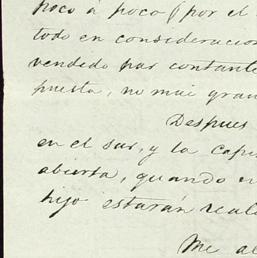 poco á poco (por el
todo en consideracion
vendido par constante
puesta, no mui gran
Despues
en el sur, y la capi
abierta, quando en
hijo estarán reali
Me al